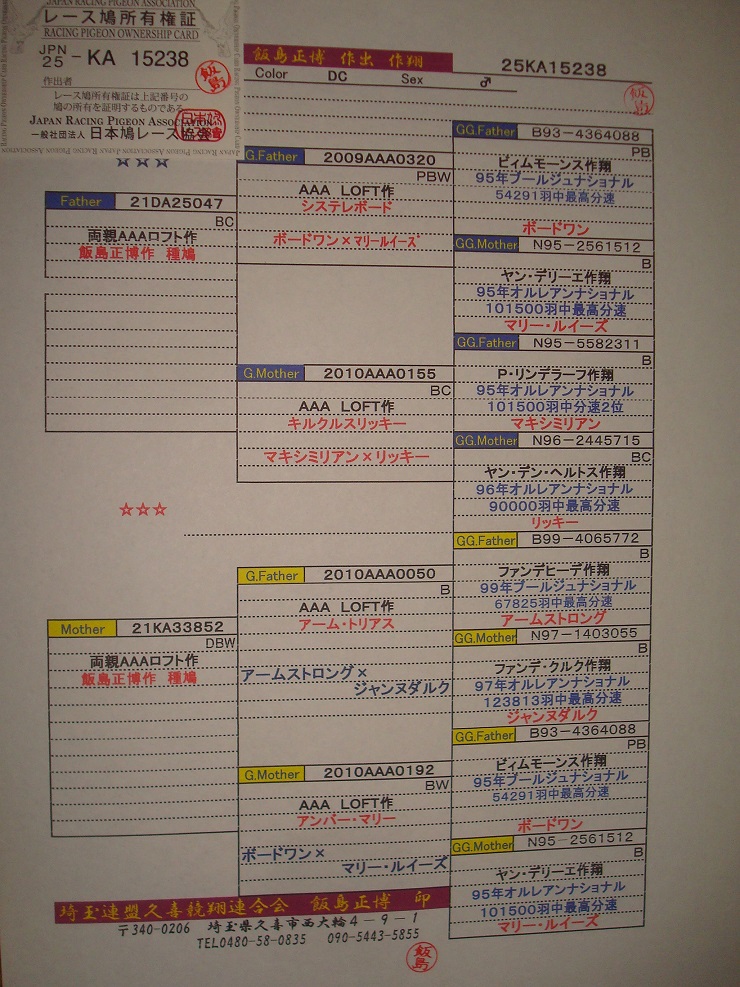 JAPAN RACING PIGEON ASSOCIATION
レース鳩所有権証
RACING PIGEON OWNERSHIP CARD
JPN
25 - KA 15238
飯島
作出者
レース鳩所有権証は上記番号の
鳩の所有を証明するものである
JAPAN RACING PIGEON ASSOCIATION
一般社団法人 日本鳩レース協会
☆☆☆
飯島正博 作出 作翔
25KA15238
Color DC Sex ♂
飯島
Father 21DA25047
BC
両親AAAロフト作
飯島正博作 種鳩
G.Father 2009AAA0320
PBW
AAA LOFT作
システレボード
ボードワン×マリールイーズ
G.Mother 2010AAA0155
BC
AAA LOFT作
キルクルスリッキー
マキシミリアン×リッキー
GG.Father B93-4364088
PB
ビィムモーンス作翔
95年ブールジュナショナル
54291羽中最高分速
ボードワン
GG.Mother N95-2561512
B
ヤン・デリーエ作翔
95年オルレアンナショナル
101500羽中最高分速
マリー・ルイーズ
GG.Father N95-5582311
B
P・リンデラーフ作翔
95年オルレアンナショナル
101500羽中分速2位
マキシミリアン
GG.Mother N96-2445715
BC
ヤン・デン・ヘルトス作翔
96年オルレアンナショナル
90000羽中最高分速
リッキー
☆☆☆
Mother 21KA33852
DBW
両親AAAロフト作
飯島正博作 種鳩
G.Father 2010AAA0050
B
AAA LOFT作
アーム・トリアス
アームストロング×
ジャンヌダルク
G.Mother 2010AAA0192
BW
AAA LOFT作
アンバー・マリー
ボードワン×
マリー・ルイーズ
GG.Father B99-4065772
B
ファンデヒーデ作翔
99年ブールジュナショナル
67825羽中最高分速
アームストロング
GG.Mother N97-1403055
B
ファンデ・クルク作翔
97年オルレアンナショナル
123813羽中最高分速
ジャンヌダルク
GG.Father B93-4364088
PB
ビィムモーンス作翔
95年ブールジュナショナル
54291羽中最高分速
ボードワン
GG.Mother N95-2561512
B
ヤン・デリーエ作翔
95年オルレアンナショナル
101500羽中最高分速
マリー・ルイーズ
埼玉連盟久喜競翔連合会 飯島正博 印
〒340-0206 埼玉県久喜市西大輪4-9-1
TEL0480-58-0835 090-5443-5855
飯島